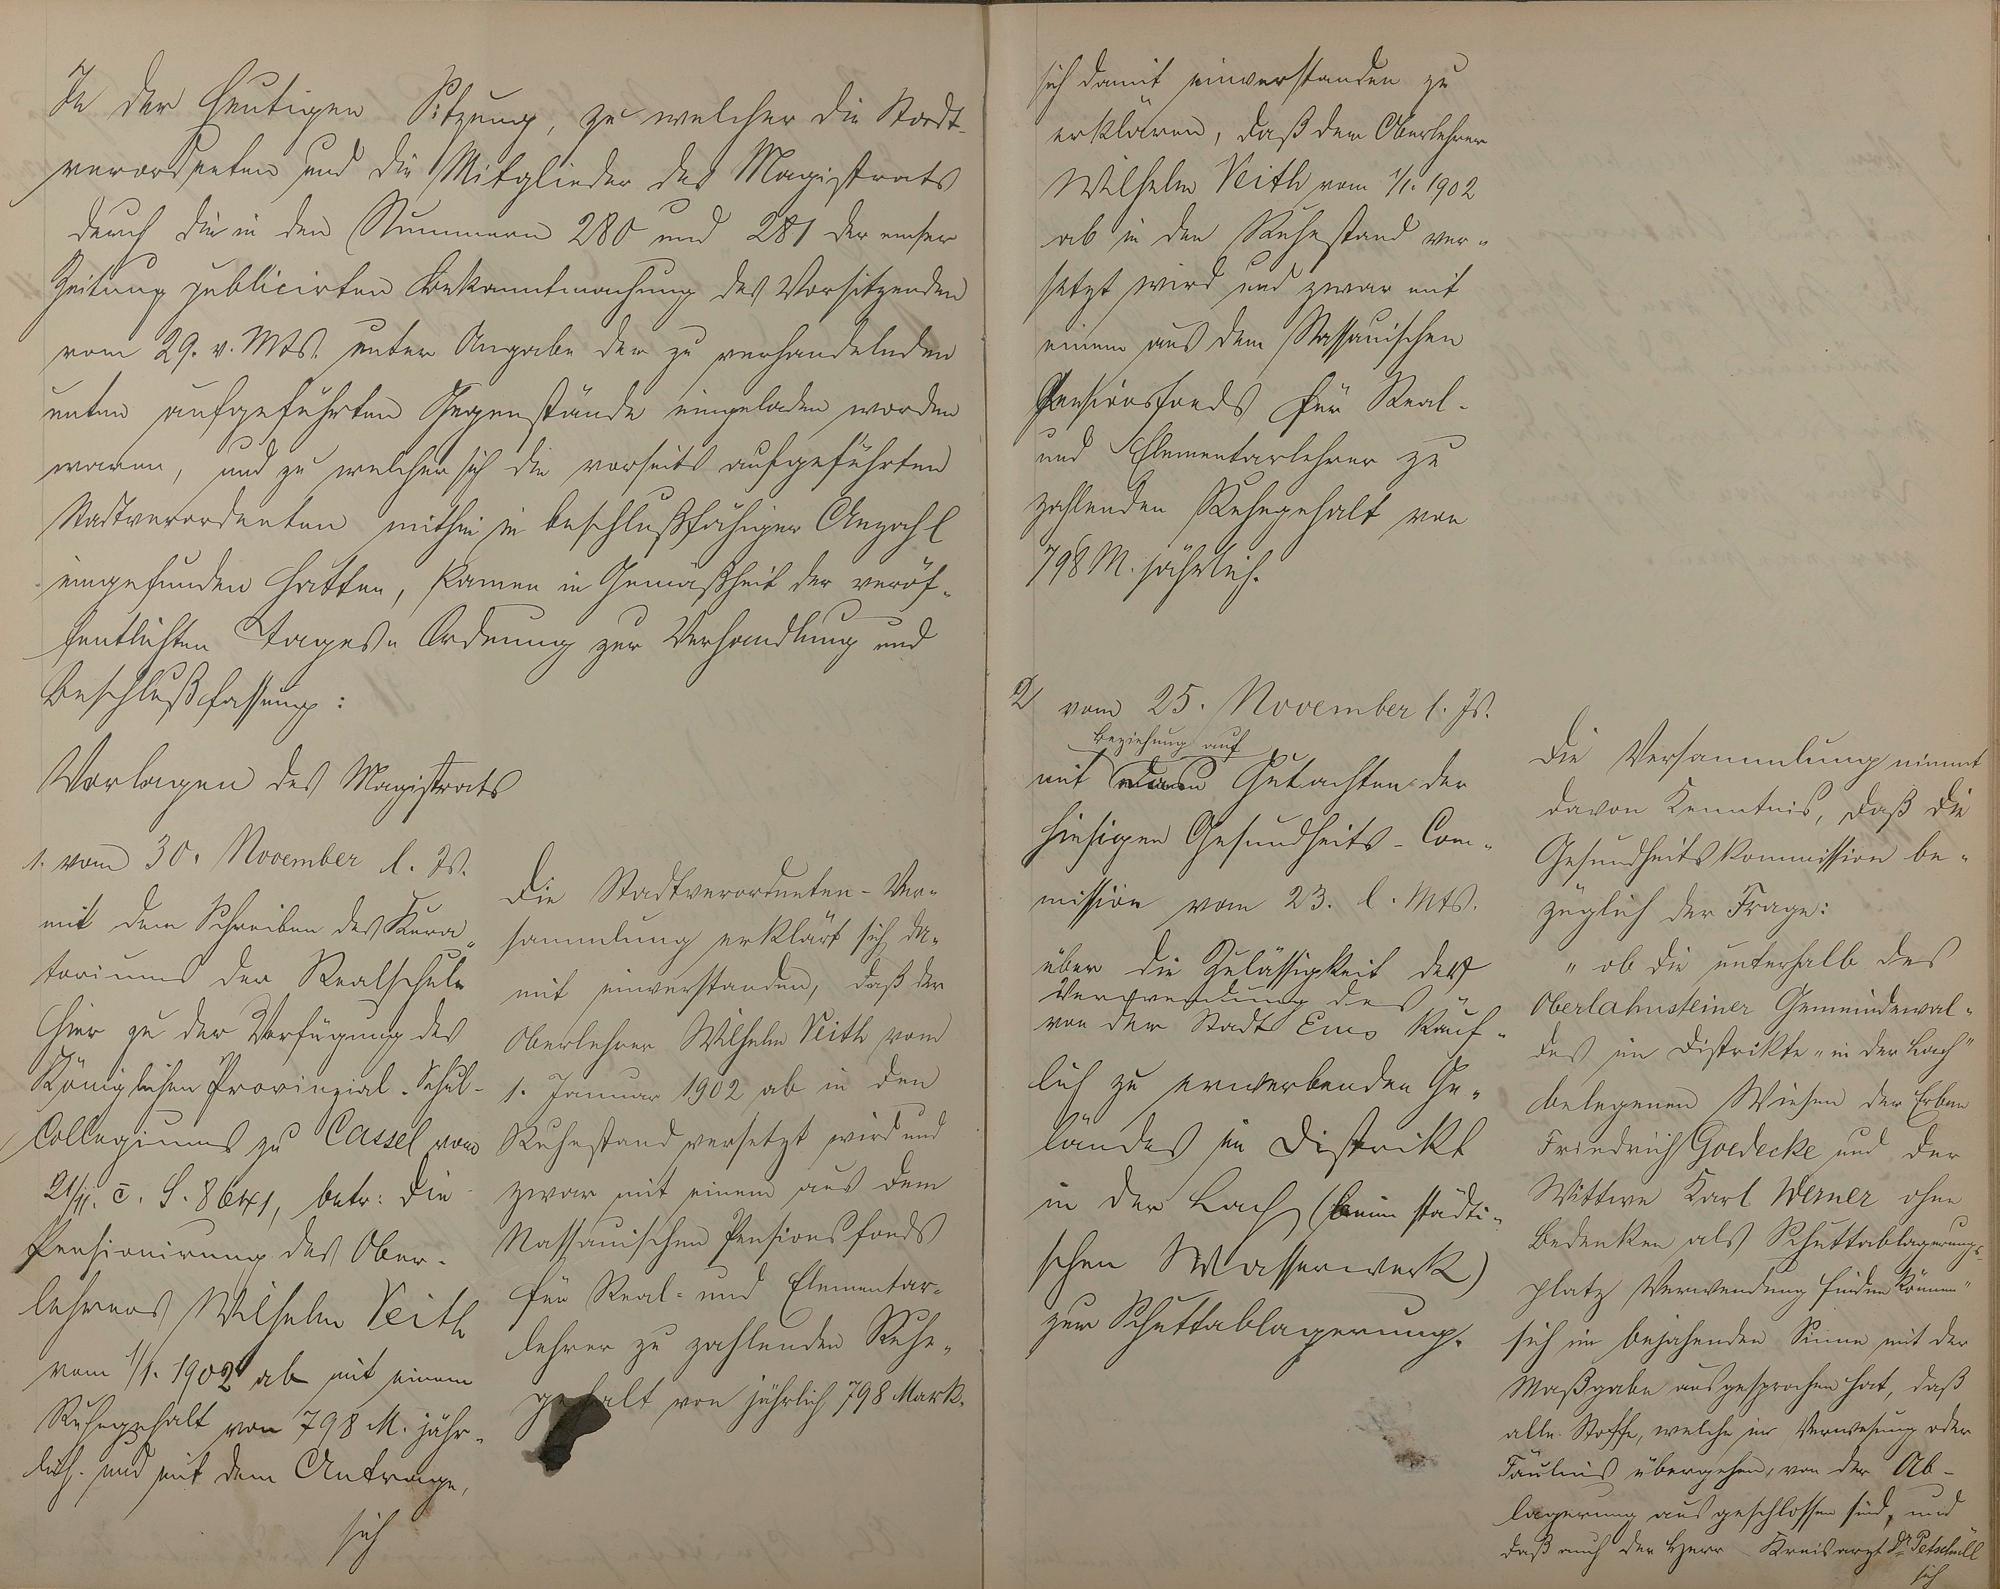 In der heutigen Sitzung, zu welcher die Stadt-
verordneten und die Mitglieder des Magistrats
durch die in den Nummern 280 und 281 der emser
Zeitung publicirten Bekanntmachung des Vorsitzenden
vom 29. v. Mts. unter Angabe der zu verhandelnden
unten aufgeführten Gegenstände eingeladen worden
waren, und zu welcher sich die vorseits aufgeführten
Stadtverordneten mithin in beschlußfähiger Anzahl
eingefunden hatten, kamen in Gemäßheit der veröf-
fentlichten Tages-Ordnung zur Verhandlung und
Beschlußfassung:
Vorlagen des Magistrats
1. vom 30. November l. Js.
mit dem Schreiben des Kura-
toriums der Realschule
hier zu der Verfügung des
Königlichen Provinzial-Schul-
Collegiums zu Cassel vom
21/11. c. S. 8641, betr: die
Pensionirung des Ober-
lehrers Wilhelm Veith
vom 1/1. 1902 ab mit einem
Ruhegehalt von 798 M. jähr-
lich. und mit dem Antrage,
sich
Die Stadtverordneten-Ver-
sammlung erklärt sich da-
mit einverstanden, daß der
Oberlehrer Wilhelm Veith vom
1. Januar 1902 ab in den
Ruhestand versetzt wird und
zwar mit einem aus dem
Nassauischen Pensionsfonds
für Real- und Elementar-
lehrer zu zahlenden Ruhe-
gehalt von jährlich 798 Mark.
sich damit einverstanden zu
erklären, daß dem Oberlehrer
Wilhelm Veith vom 1/1. 1902
ab in den Ruhestand ver-
setzt wird und zwar mit
einem aus dem Nassauischen
Pensionsfonds für Real-
und Elementarlehrer zu
zahlenden Ruhegehalt von
798 M. jährlich.
2/ vom 25. November l. Js.
Beziehung auf
mit Gutachten der
hiesigen Gesundheits-Com-
mission vom 23. l. Mts.
über die Zulässigkeit der
Verwendung des
von der Stadt Ems käuf-
lich zu erwerbenden Ge-
ländes im Distrikt
in der Lach (beim städti-
schen Wasserwerk)
zur Schuttablagerung.
Die Versammlung nimmt
davon Kenntnis, daß die
Gesundheitskommission be-
züglich der Frage:
"ob die unterhalb des
Oberlahnsteiner Gemeindewal-
des im Distrikte "in der Lach"
belegenen Wiesen der Erben
Friedrich Goedecke und der
Wittwe Karl Werner ohne
Bedenken als Schuttablagerungs-
platz Verwendung finden können"
sich im bejahenden Sinne mit der
Maßgabe ausgesprochen hat, daß
alle Stoffe, welche in Verwesung oder
Fäulnis übergehen, von der Ab-
lagerung ausgeschlossen sind, und
daß auch der Herr Kreisarzt Dr. Petschull
sich